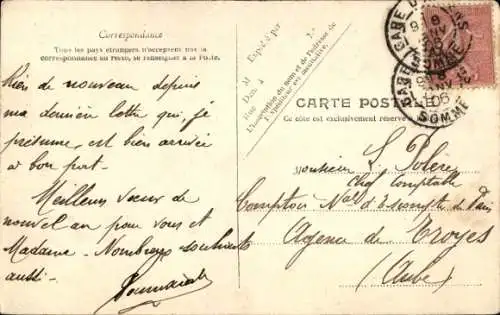 Correspondance
Tous les pays étrangers n'acceptent pas la
correspondance au recto, se renseigner à la Poste.
Rien de nouveau depuis
ma dernière lettre qui, je
présume, est bien arrivée
à bon port.
Meilleurs vœux de
nouvel an pour vous et
Madame. Nombreux souhaits
aussi.
Expédié par
M
Dem à
Rue
N°
L'inscription du nom et de l'adresse de
l'expéditeur est facultative.
CARTE POSTALE
Ce côté est exclusivement réservé à
GARE
SOMME
06
GARE
SOMME
06
Monsieur L.
Chef Comptable
Comptoir Nal d'Escompte de Paris
Agence de Troyes
(Aube)